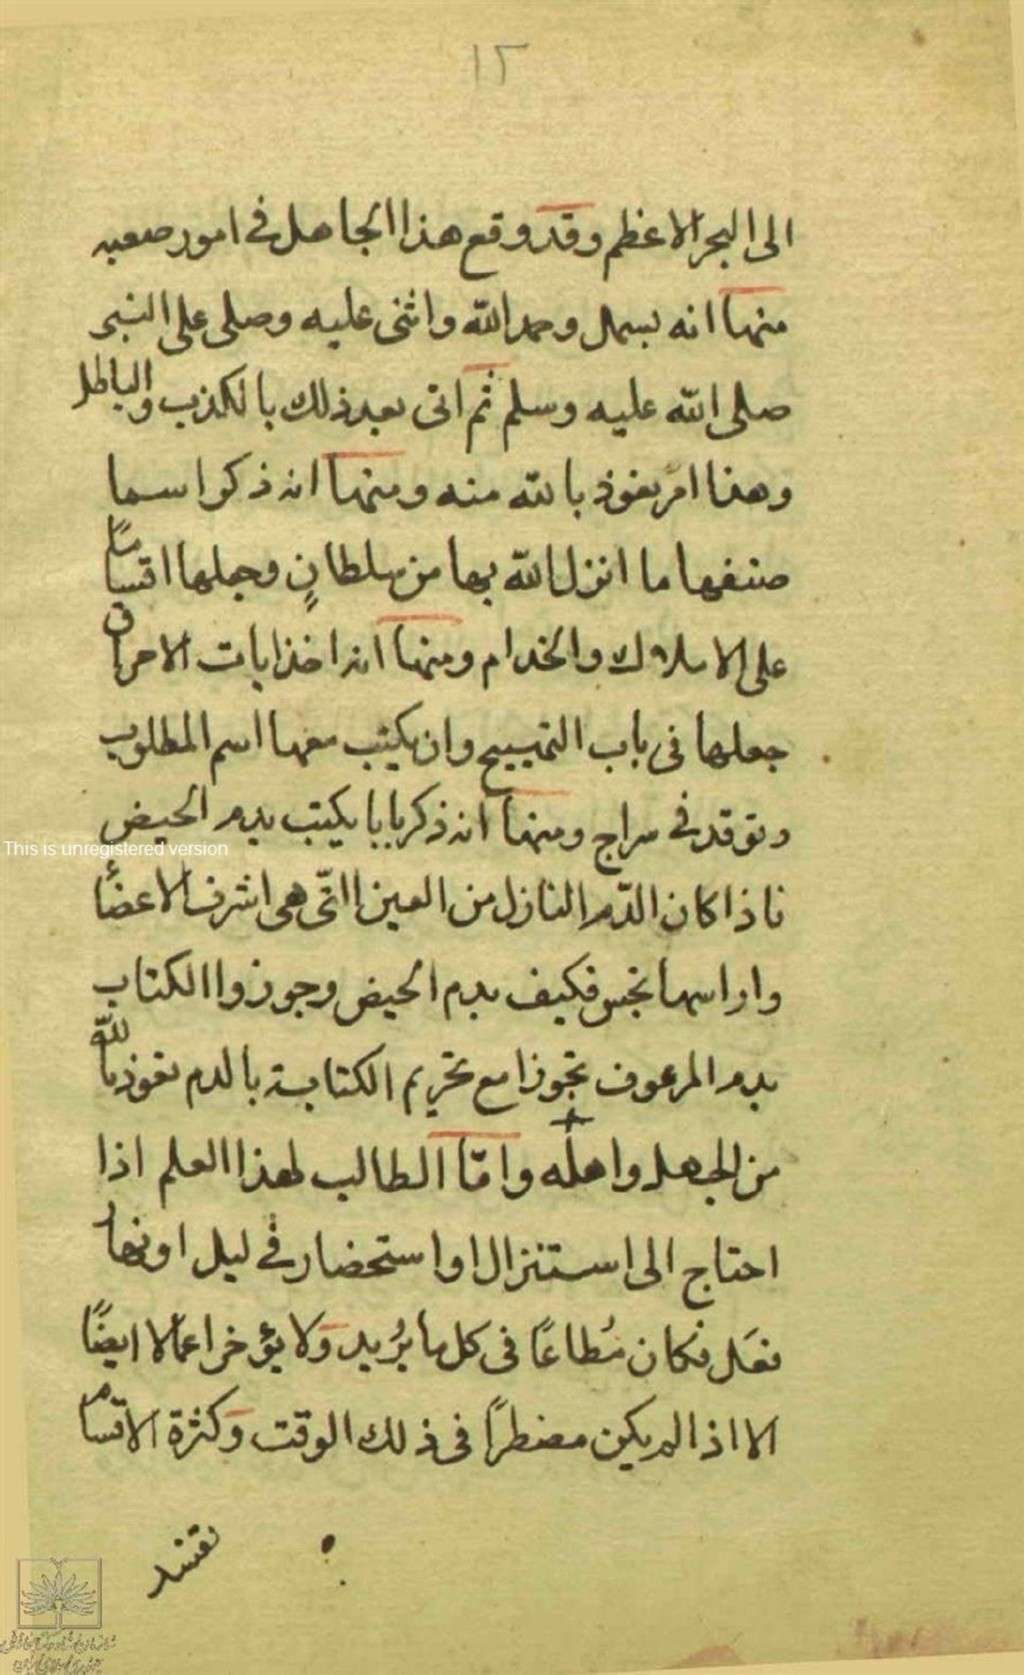 ١٢
الى البحر الاعظم وقد وقع هذا الجاهل فى امور صعبه
منها انه بسمل وحمد الله واثنى عليه وصلى على النبى
صلى الله عليه وسلم ثم اتى بعد ذلك بالكذب والباطل
وهذا امر نعوذ بالله منه ومنها انه ذكر اسما
صنفها ما انزل الله بها من سلطانٍ وجعلها اقسامًا
على الاملاك والخدام ومنها انه اخذ ايات الاحراق
جعلها فى باب التهييج وان يكتب معها اسم المطلوب
وتوقد فى سراج ومنها انه ذكر بابا يكتب بدم الحيض
فاذا كان الدّم النازل من العين التّى هى اشرف الاعضأ
واراسها نجس فكيف بدم الحيض وجوزوا الكتاب
بدم المرعوف تجوزا مع تحريم الكتابة بالدم نعوذ بالله
من الجهل واهله وامّا الطالب لهذا العلم اذا
احتاج الى استنزال او استحضار فى ليل او نهار
فعَل فكان مُطاعًا فى كل ما يُريد وَلا يؤخر اعمالا ايضًا
الا اذا لم يكن مضطرًا فى ذلك الوقت وَكثرة الاقسام
تفسد
This is unregistered version